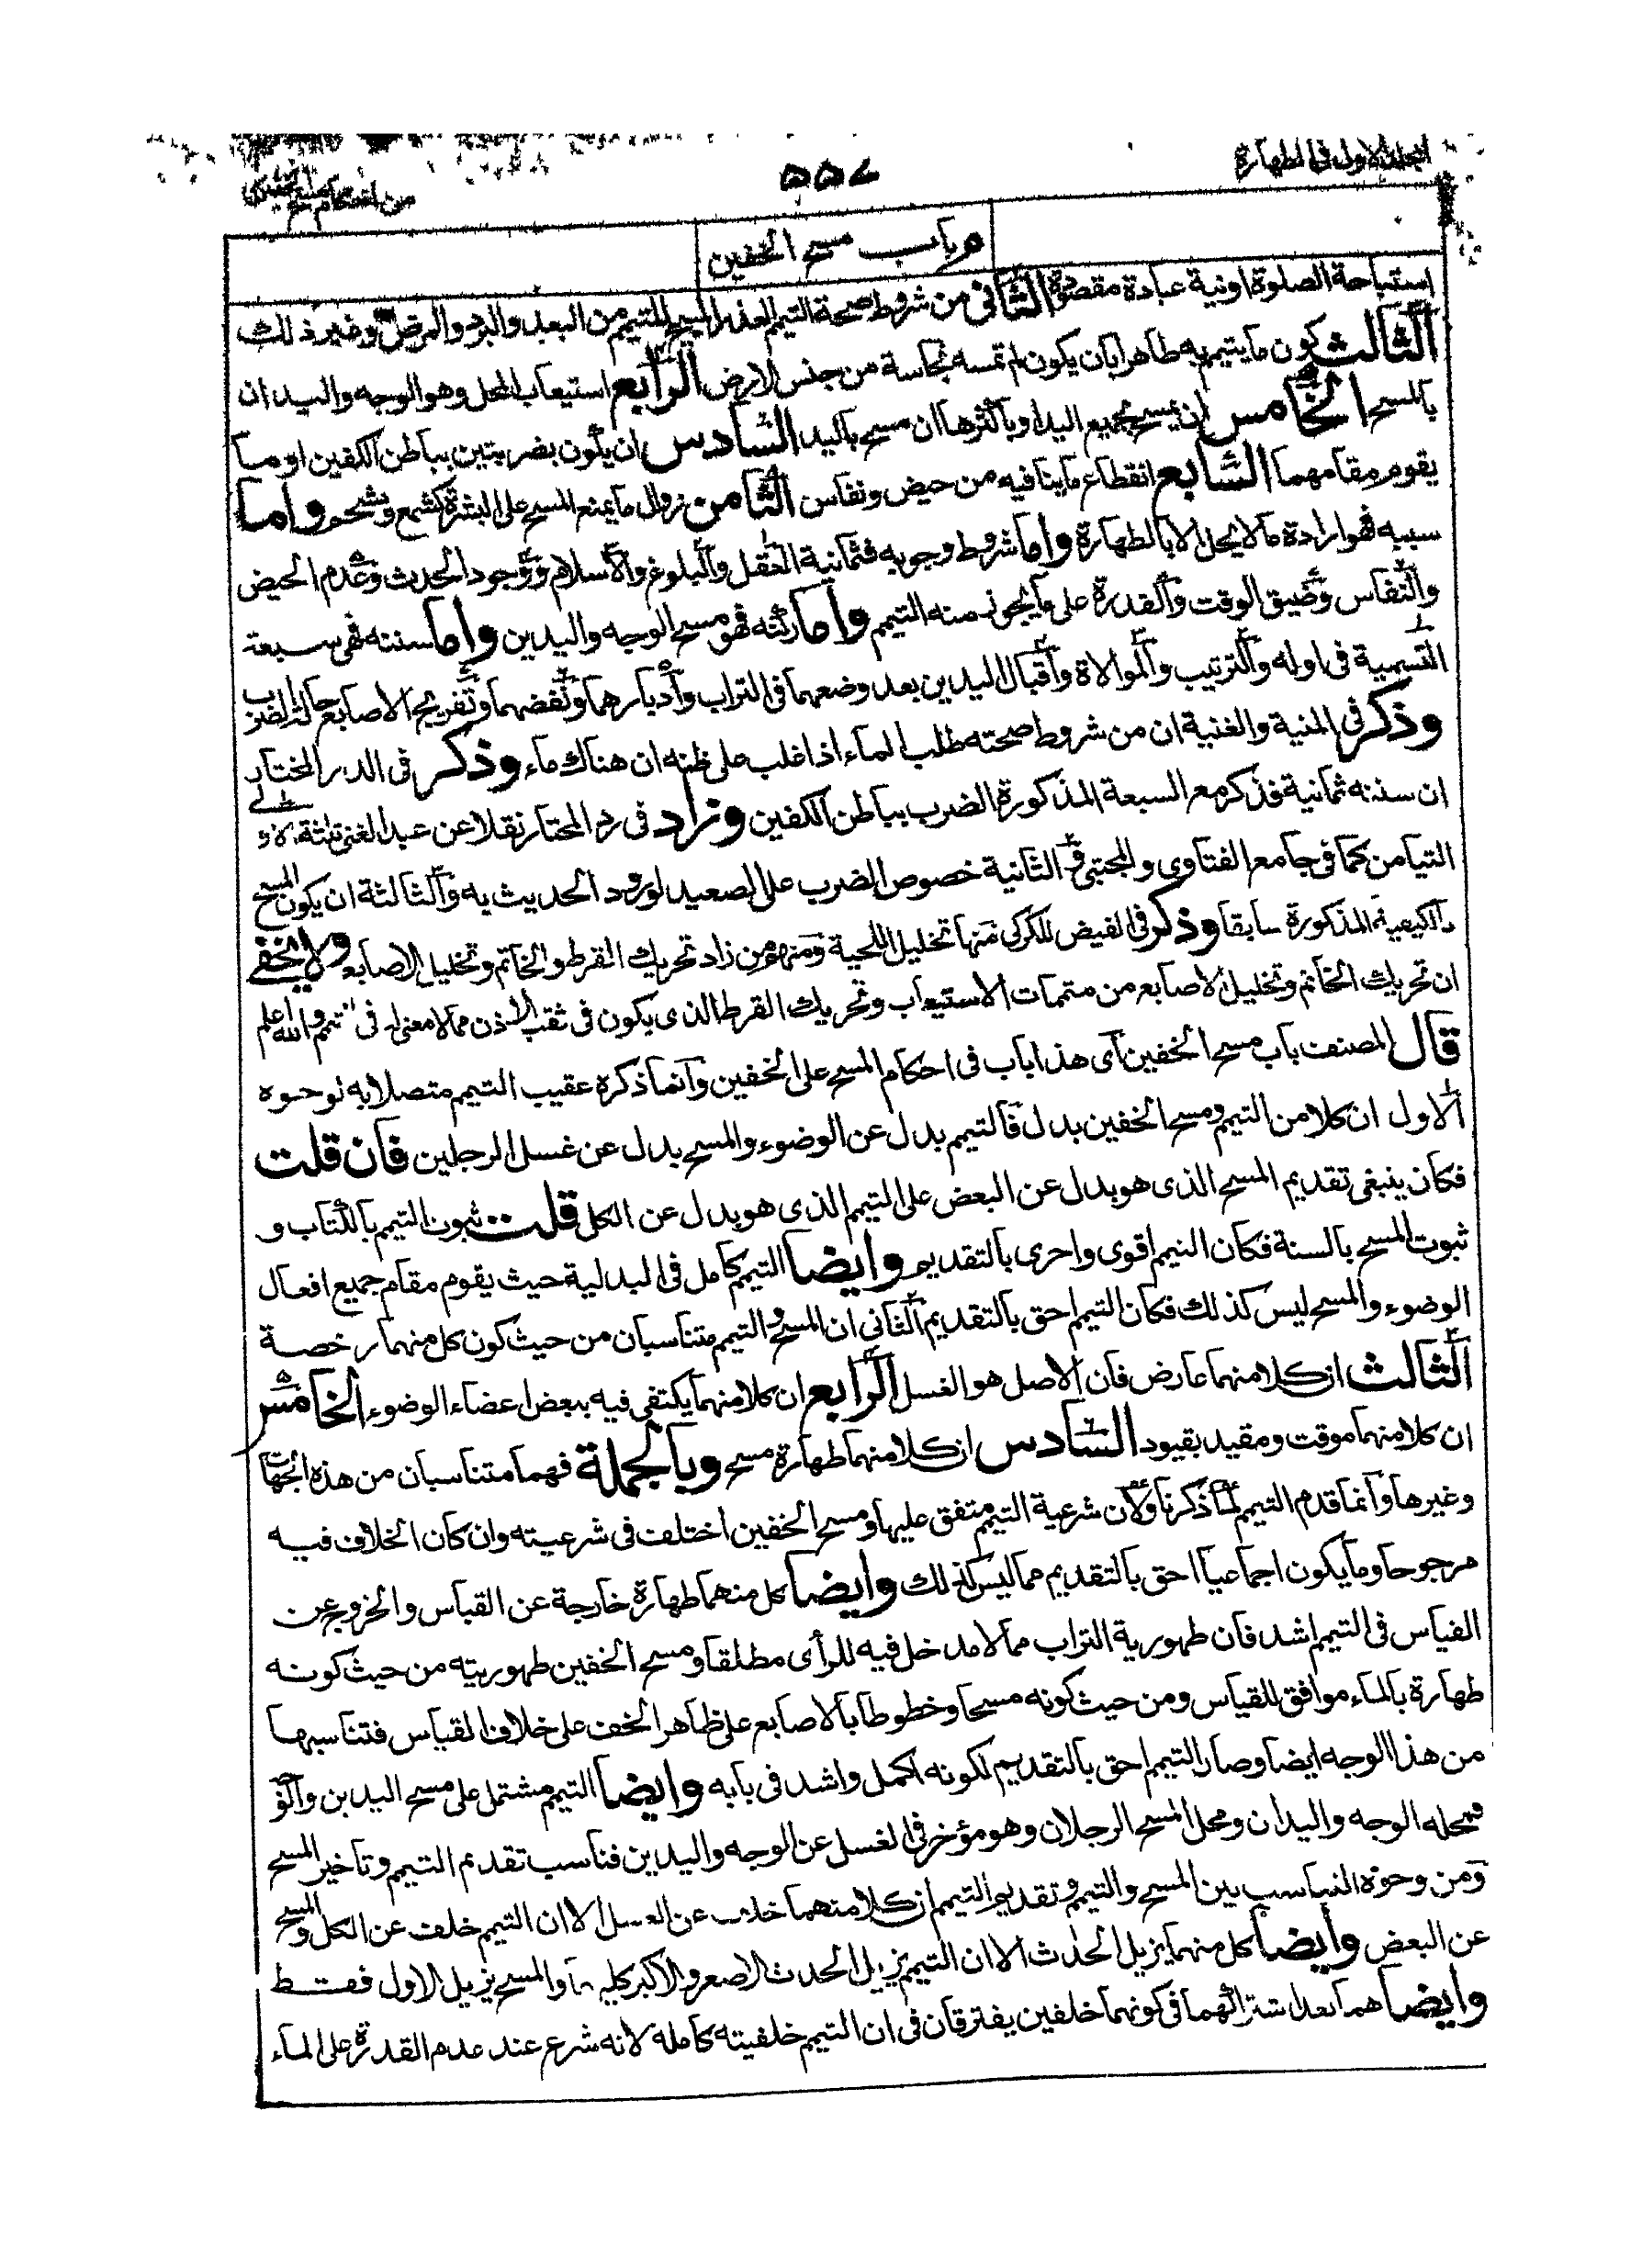 المجلد الاول فى الطهارة
٥٥٧
م باب مسح الخفين
استباحة الصلوة او نية عبادة مقصودة الثانى من شروط صحة التيمم العذر المبيح للتيمم من البعد والبرد والمرض وغير ذلك
الثالث كون ما يتيمم به طاهرا بان يكون لم تمسه نجاسة من جنس الارض الرابع استيعاب المحل وهو الوجه واليدان
بالمسح الخامس ان يمسح بجميع اليد او باكثرها ان مسح باليد السادس ان يكون بضربتين بباطن الكفين او ما
يقوم مقامهما السابع انقطاع ما ينافيه من حيض ونفاس الثامن زوال ما يمنع المسح على البشرة كشمع وشحم واما
سببه فهو ارادة ما لا يحل الا بالطهارة واما شروط وجوبه فثمانية العقل والبلوغ والاسلام ووجود الحدث وعدم الحيض
والنفاس وضيق الوقت والقدرة على ما يجوز منه التيمم واما ركنه فهو مسح الوجه واليدين واما سننه فهى سبعة
التسمية فى اوله والترتيب والموالاة واقبال اليدين بعد وضعهما فى التراب وادبارهما ونفضهما وتفريج الاصابع حالة الضرب
وذكر فى المنية والغنية ان من شروط صحته طلب الماء اذا غلب على ظنه ان هناك ماء وذكر فى الدر المختار
ان سننه ثمانية فذكر مع السبعة المذكورة الضرب بباطن الكفين وزاد فى رد المحتار نقلا عن عبد الغنى ثلثة الاولى
التيامن كما فى جامع الفتاوى والمجتبى والثانية خصوص الضرب على الصعيد لورود الحديث به والثالثة ان يكون المسح
بالكيفية المذكورة سابقا وذكر فى الفيض للكركى منها تخليل اللحية ومنهم من زاد تحريك القرط والخاتم وتخليل الاصابع ولا يخفى
ان تحريك الخاتم وتخليل الاصابع من متممات الاستيعاب وتحريك القرط الذى يكون فى ثقب الاذن مما لا معنى له فى التيمم والله اعلم
قال المصنف باب مسح الخفين اى هذا باب فى احكام المسح على الخفين وانما ذكره عقيب التيمم متصلا به لوجوه
الاول ان كلا من التيمم ومسح الخفين بدل فالتيمم بدل عن الوضوء والمسح بدل عن غسل الرجلين فان قلت
فكان ينبغى تقديم المسح الذى هو بدل عن البعض على التيمم الذى هو بدل عن الكل قلت ثبوت التيمم بالكتاب و
ثبوت المسح بالسنة فكان التيمم اقوى واحرى بالتقديم وايضا التيمم كامل فى البدلية حيث يقوم مقام جميع افعال
الوضوء والمسح ليس كذلك فكان التيمم احق بالتقديم الثانى ان المسح والتيمم متناسبان من حيث كون كل منهما رخصة
الثالث ان كلا منهما عارض فان الاصل هو الغسل الرابع ان كلا منهما يكتفى فيه ببعض اعضاء الوضوء الخامس
ان كلا منهما موقت ومقيد بقيود السادس ان كلا منهما طهارة مسح وبالجملة فهما متناسبان من هذه الجهات
وغيرها وانما قدم التيمم لما ذكرنا ولان شرعية التيمم متفق عليها ومسح الخفين اختلف فى شرعيته وان كان الخلاف فيه
مرجوحا وما يكون اجماعيا احق بالتقديم مما ليس كذلك وايضا كل منهما طهارة خارجة عن القياس والخروج عن
القياس فى التيمم اشد فان طهورية التراب مما لا مدخل فيه للرأى مطلقا ومسح الخفين طهوريته من حيث كونه
طهارة بالماء موافق للقياس ومن حيث كونه مسحا وخطوطا بالاصابع على ظاهر الخف على خلاف القياس فتناسبها
من هذا الوجه ايضا وصار التيمم احق بالتقديم لكونه اكمل واشد فى بابه وايضا التيمم مشتمل على مسح اليدين والو
فمحله الوجه واليدان ومحل المسح الرجلان وهو مؤخر فى الغسل عن الوجه واليدين فناسب تقديم التيمم وتاخير المسح
ومن وجوه التناسب بين المسح والتيمم وتقديم التيمم ان كلا منهما خلف عن الغسل الا ان التيمم خلف عن الكل والمسح
عن البعض وايضا كل منهما يزيل الحدث الا ان التيمم يزيل الحدث الاصغر والاكبر كليهما والمسح يزيل الاول فقط
وايضا هما بعد اشتراكهما فى كونهما خلفين يفترقان فى ان التيمم خلفيته كاملة لانه شرع عند عدم القدرة على الماء